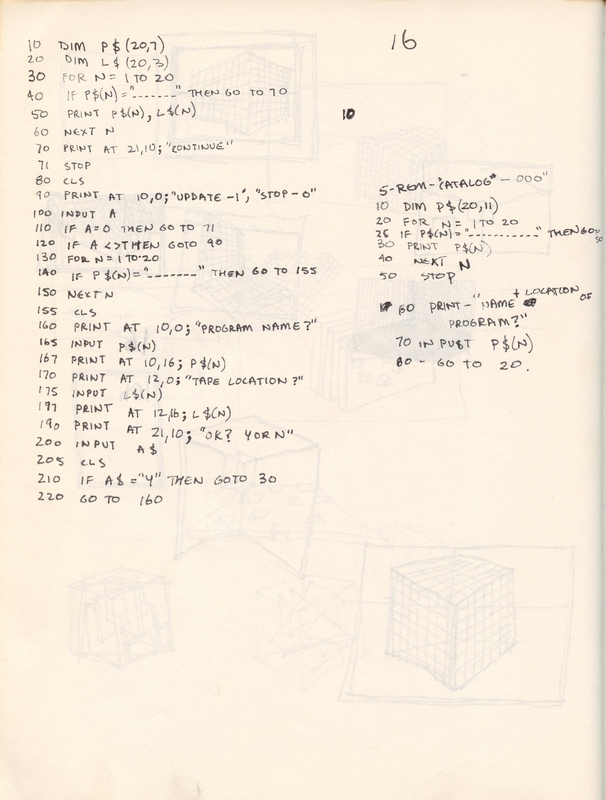 16
10 DIM P$(20,7)
20 DIM L$(20,3)
30 FOR N = 1 TO 20
40 IF P$(N)="-------" THEN GO TO 70
50 PRINT P$(N), L$(N)
60 NEXT N
70 PRINT AT 21,10; "CONTINUE"
71 STOP
80 CLS
90 PRINT AT 10,0; "UPDATE -1", "STOP - 0"
100 INPUT A
110 IF A=0 THEN GO TO 71
120 IF A <>THEN GOTO 90
130 FOR N = 1 TO 20
140 IF P$(N)="-------" THEN GO TO 155
150 NEXT N
155 CLS
160 PRINT AT 10,0; "PROGRAM NAME?"
165 INPUT P$(N)
167 PRINT AT 10,16; P$(N)
170 PRINT AT 12,0; "TAPE LOCATION?"
175 INPUT L$(N)
PRINT AT 12,16; L$(N)
190 PRINT AT 21,10; "OK? Y OR N"
200 INPUT A$
205 CLS
210 IF A$ ="Y" THEN GOTO 30
220 GO TO 160
10
5-REM-"CATALOG" - 000"
10 DIM P$(20,11)
20 FOR N = 1 TO 20
25 IF P$(N)="-----------" THEN GO TO 50
30 PRINT P$(N)
40 NEXT N
50 STOP
60 PRINT-"NAME + LOCATION OF
PROGRAM?"
70 INPUT P$(N)
80 - GO TO 20.